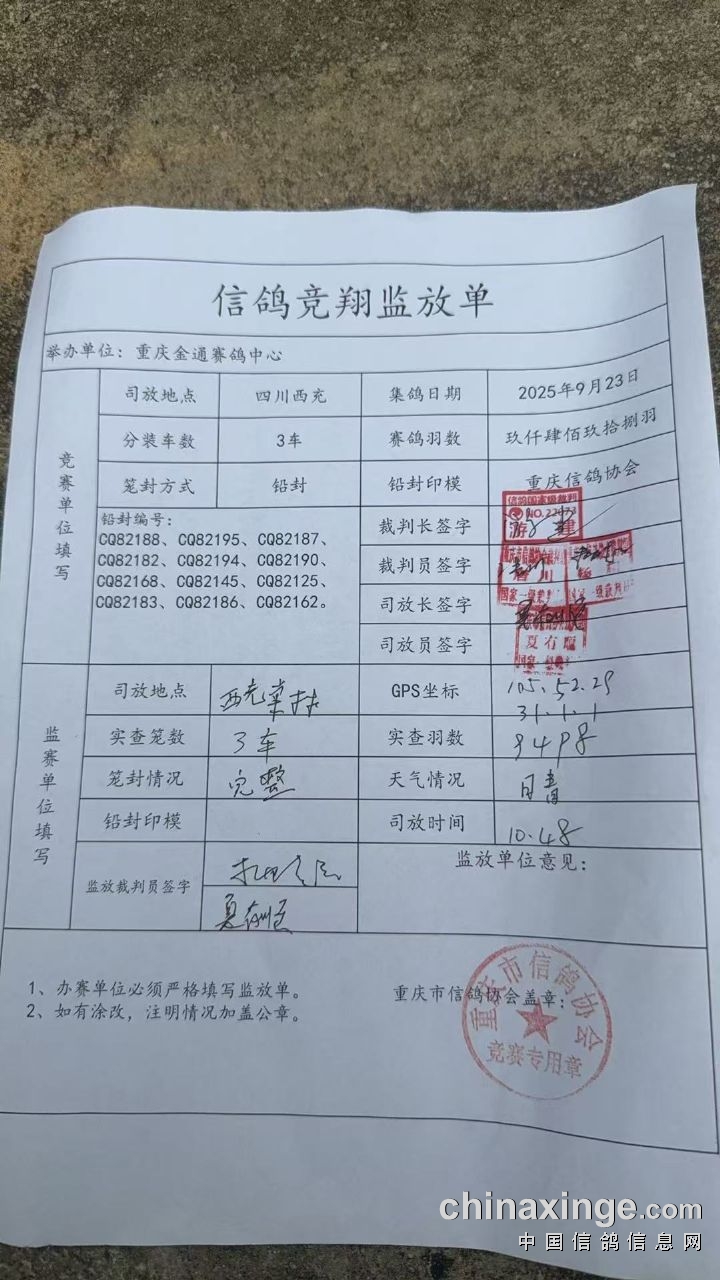 信鸽竞翔监放单
举办单位：重庆金通赛鸽中心
竞赛单位填写
司放地点 四川西充 集鸽日期 2025年9月23日
分装车数 3车 赛鸽羽数 玖仟肆佰玖拾捌羽
笼封方式 铅封 铅封印模 重庆信鸽协会
铅封编号：
CQ82188、CQ82195、CQ82187、
CQ82182、CQ82194、CQ82190、
CQ82168、CQ82145、CQ82125、
CQ82183、CQ82186、CQ82162。
裁判长签字
信鸽国家级裁判
裁判员签字
司放长签字
司放员签字
夏有顺
监赛单位填写
司放地点 西充 GPS坐标 105.52.29
31.1.1
实查笼数 3车 实查羽数 9498
笼封情况 完整 天气情况 晴
铅封印模 司放时间 10.48
监放裁判员签字
监放单位意见：
1、办赛单位必须严格填写监放单。
2、如有涂改，注明情况加盖公章。
重庆市信鸽协会盖章：
重庆市信鸽协会
竞赛专用章
chinaxinge.com
中国信鸽信息网